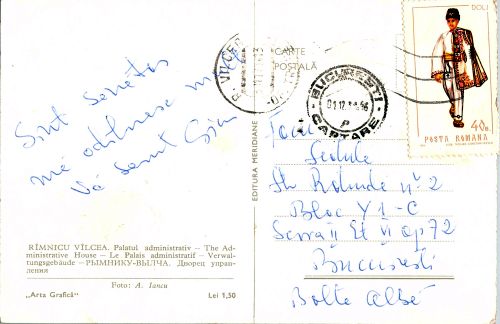 Sînt sănătos
mă odihnesc mult
Vă sărut
RÎMNICU VÎLCEA. Palatul administrativ – The Ad-
ministrative House – Le Palais administratif – Verwal-
tungsgebäude – РЫМНИКУ-ВЫЛЧА. Дворец управ-
ления
Foto: A. Iancu
„Arta Grafică” Lei 1,50
EDITURA MERIDIANE
CARTE
POSTALĂ
BUCUREȘTI
CARTARE
P
DOLJ
40B
POSTA ROMANA
Str Rotunda nr 2
Bloc Y1-C
Scara II Et VI ap 72
Bucuresti